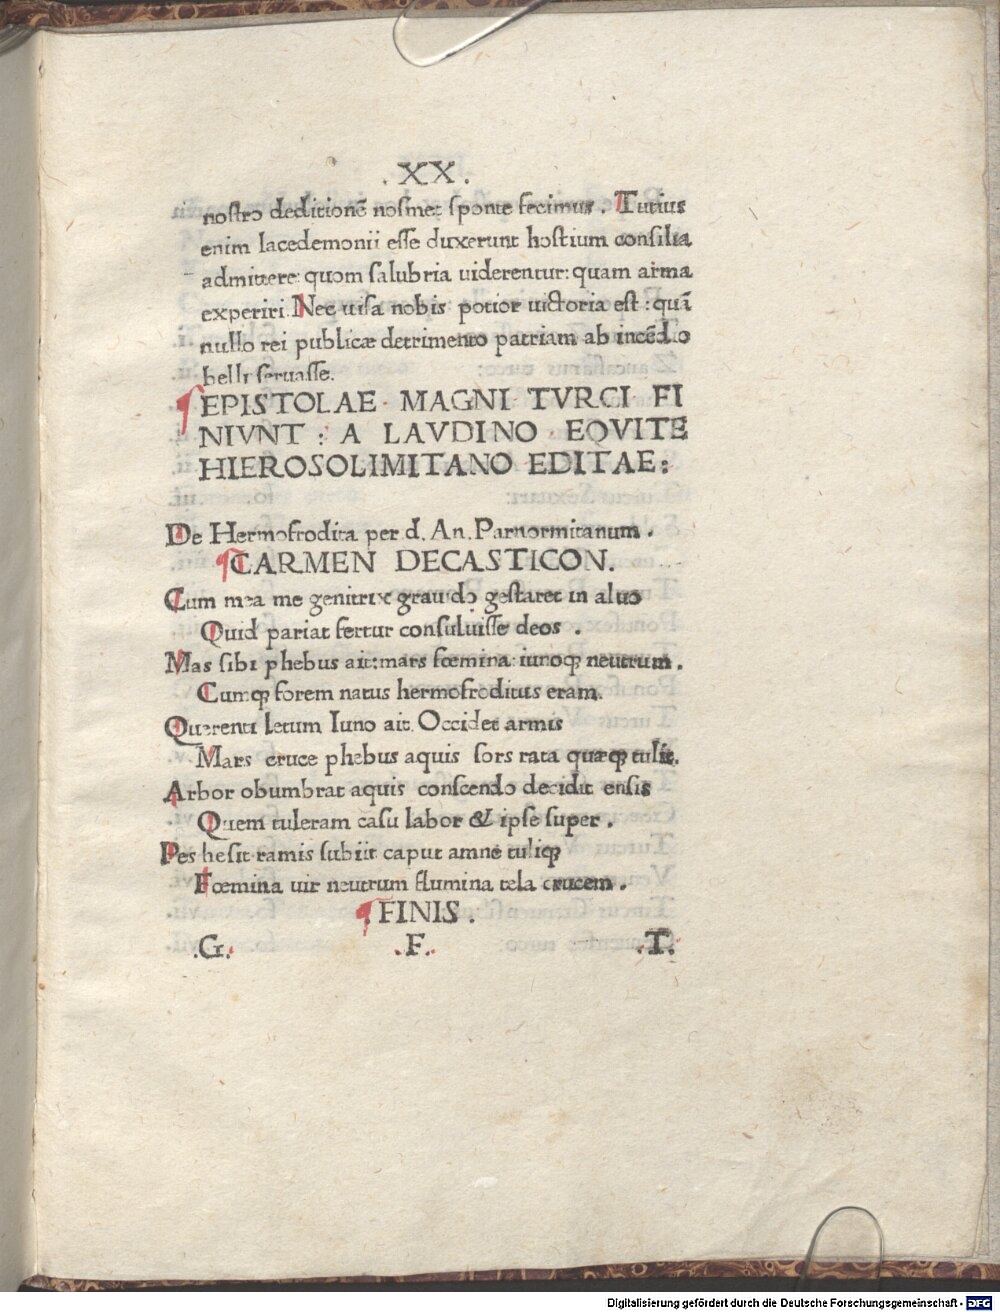 .XX.
nostro deditionē nosmet sponte fecimus. Tutius
enim lacedemonii esse duxerunt hostium consilia
admittere: quom salubria uiderentur: quam arma
experiri. Nec uisa nobis potior uictoria est: quā
nullo rei publicæ detrimento patriam ab incēdio
belli seruasse.
EPISTOLAE MAGNI TVRCI FI
NIVNT: A LAVDINO EQVITE
HIEROSOLIMITANO EDITAE:
De Hermofrodita per d. An. Parnormitanum.
CARMEN DECASTICON.
Cum mea me genitrix grauido gestaret in aluo
Quid pariat fertur consuluisse deos.
Mas sibi phebus ait: mars fœmina: iunoq; neutrum.
Cumq; forem natus hermofroditus eram.
Querenti letum Iuno ait. Occidet armis
Mars cruce phebus aquis sors rata quæq; tulit.
Arbor obumbrat aquis conscendo decidit ensis
Quem tuleram casu labor & ipse super.
Pes hesit ramis subiit caput amne tuliq;
Fœmina uir neutrum flumina tela crucem.
FINIS.
.G. .F. .T.
Digitalisierung gefördert durch die Deutsche Forschungsgemeinschaft - DFG